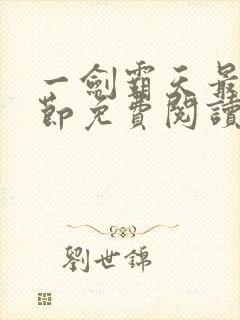 一劍霸天最
節免費閱讀
劉世錦